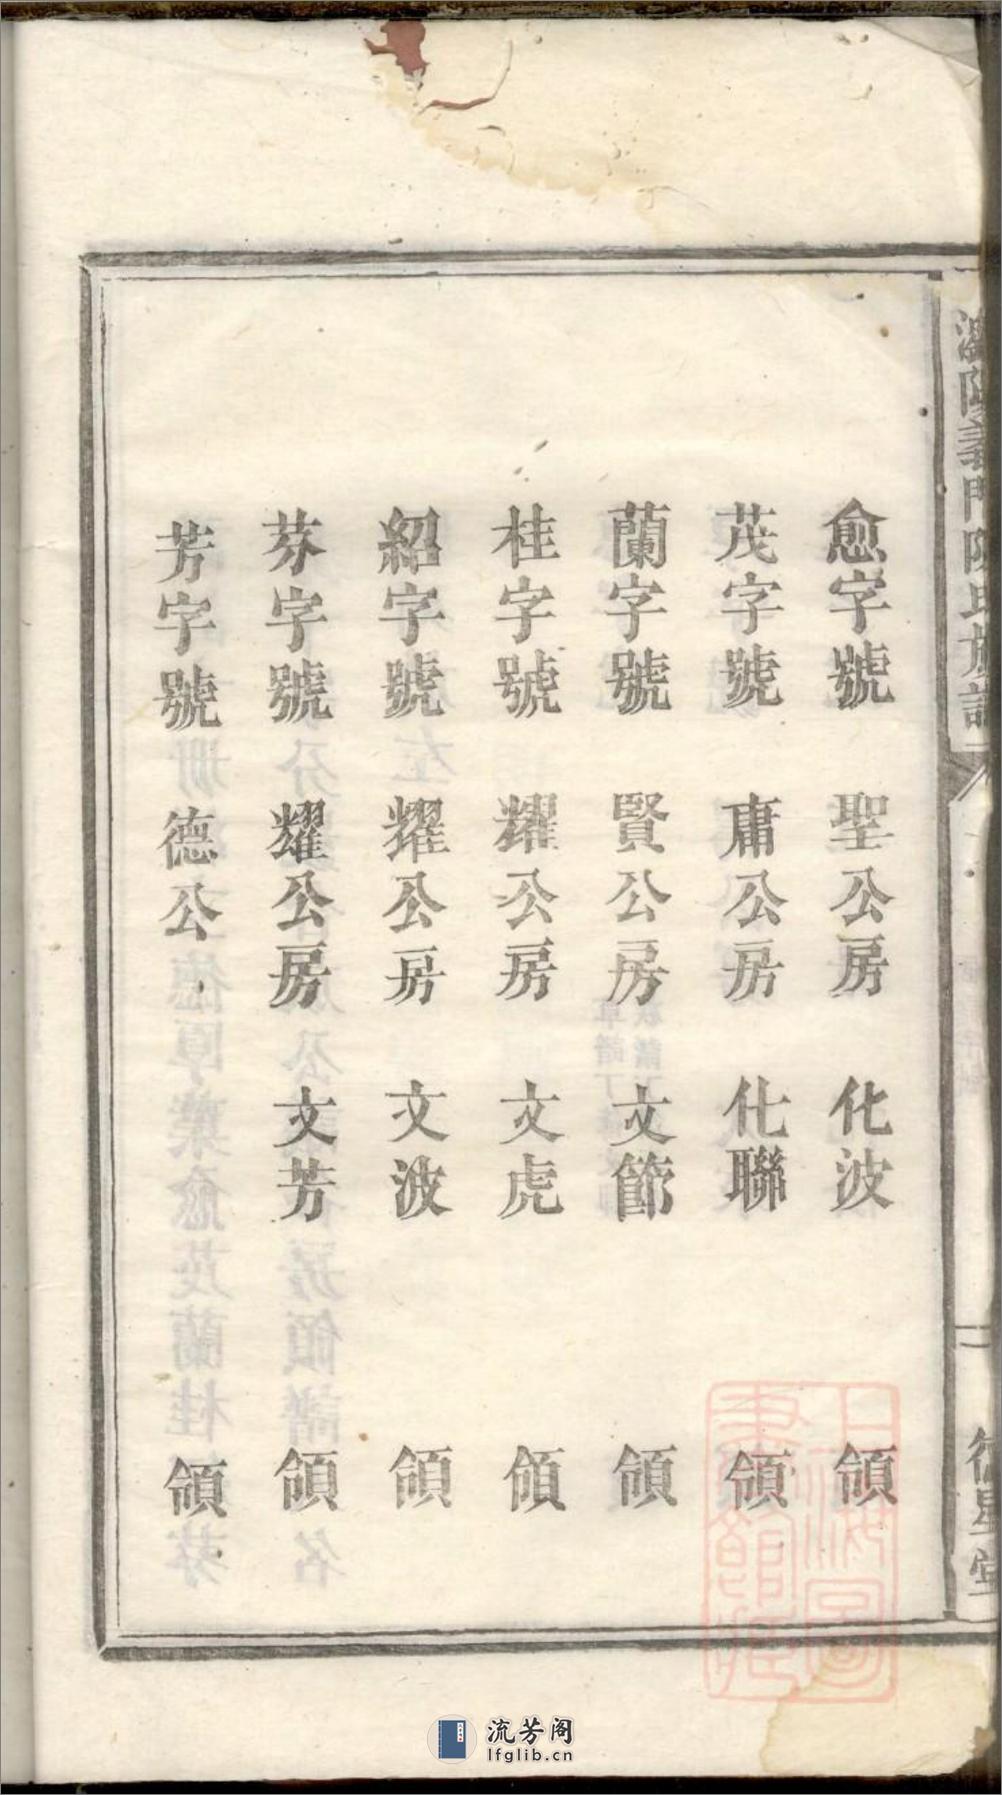 瀏陽義門陳氏族譜
德星堂
愈字號 聖公房 化波 領
茂字號 庸公房 化聯 領
蘭字號 賢公房 文節 領
桂字號 耀公房 文虎 領
紹字號 耀公房 文波 領
芬字號 耀公房 文芳 領
芳字號 德公 領
上海圖書館藏
流芳阁
lfglib.cn